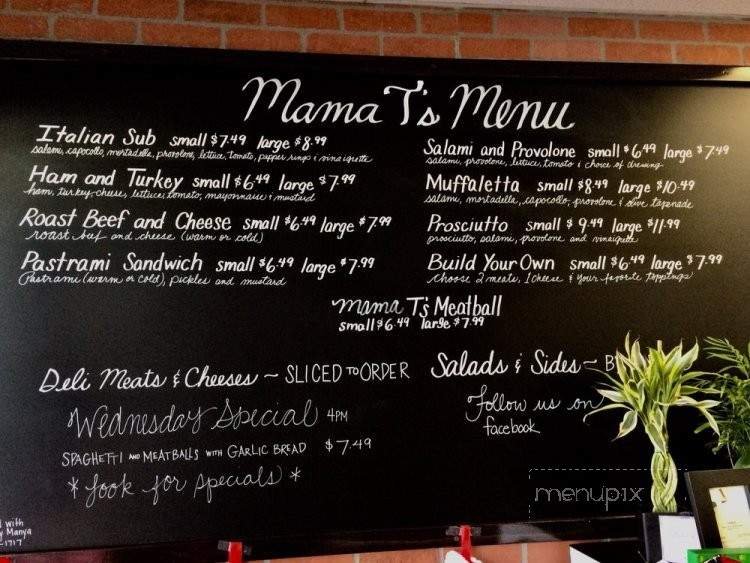 Mama T's Menu
Italian Sub small $7.49 large $8.99
salami, capocollo, mortadella, provolone, lettuce, tomato, pepper rings & vinaigrette
Ham and Turkey small $6.49 large $7.99
ham, turkey, cheese, lettuce, tomato, mayonnaise & mustard
Roast Beef and Cheese small $6.49 large $7.99
roast beef and cheese (warm or cold)
Pastrami Sandwich small $6.49 large $7.99
Pastrami (warm or cold), pickles and mustard
Salami and Provolone small $6.49 large $7.49
salami, provolone, lettuce, tomato & choice of dressing
Muffaletta small $8.49 large $10.49
salami, mortadella, capocollo, provolone & olive tapenade
Prosciutto small $9.49 large $11.99
prosciutto, salami, provolone and vinaigrette
Build Your Own small $6.49 large $7.99
choose 2 meats, 1 cheese & your favorite toppings
Mama T's Meatball
small $6.49 large $7.99
Deli Meats & Cheeses ~ SLICED TO ORDER
Wednesday Special 4PM
SPAGHETTI AND MEATBALLS WITH GARLIC BREAD $7.49
* Look for specials *
Salads & Sides ~ B
Follow us on
facebook
menupix
with
y Manya
-1717